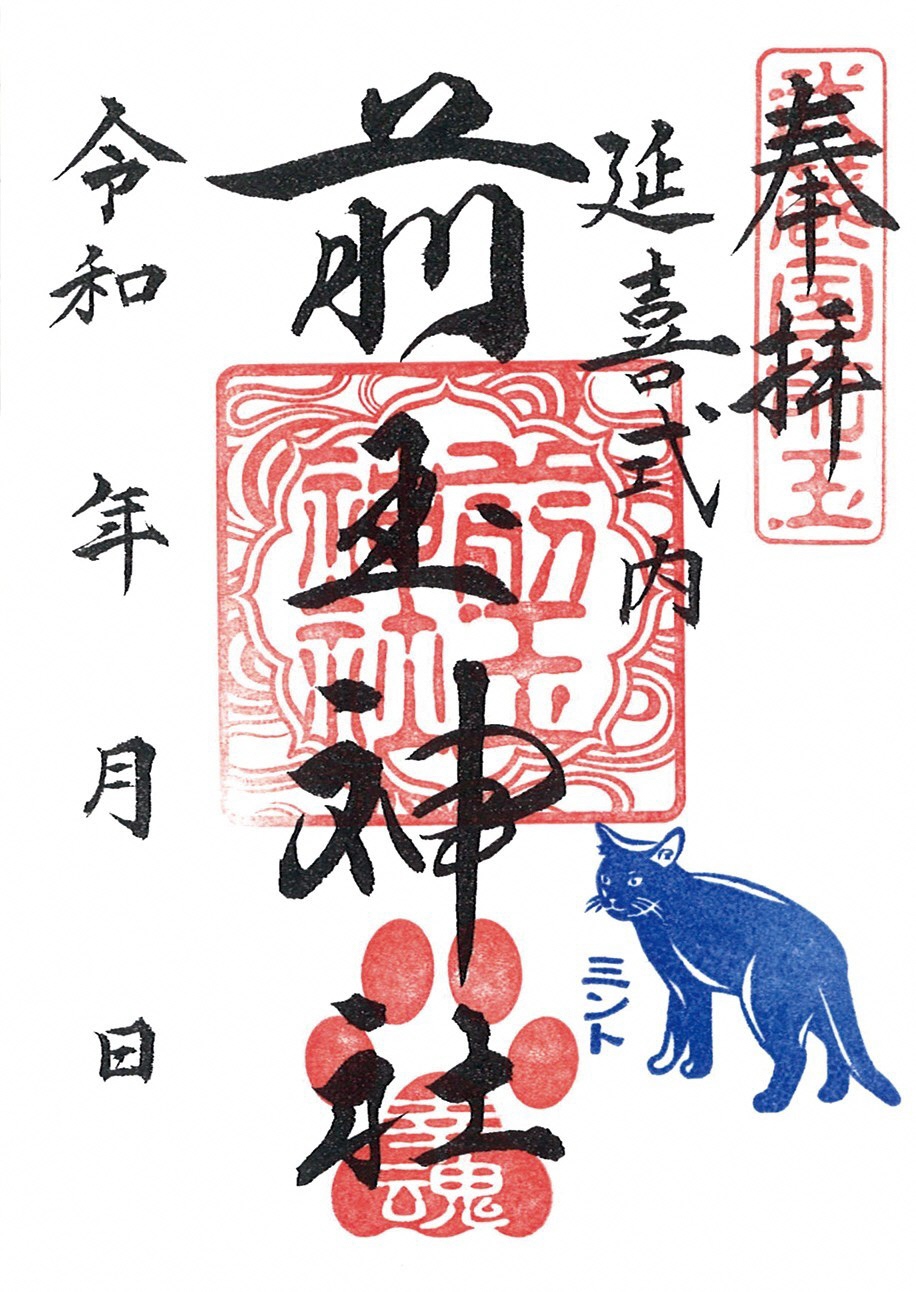 奉拝
延喜式内
前玉神社
前玉神社
魂
ミント
令和 年 月 日